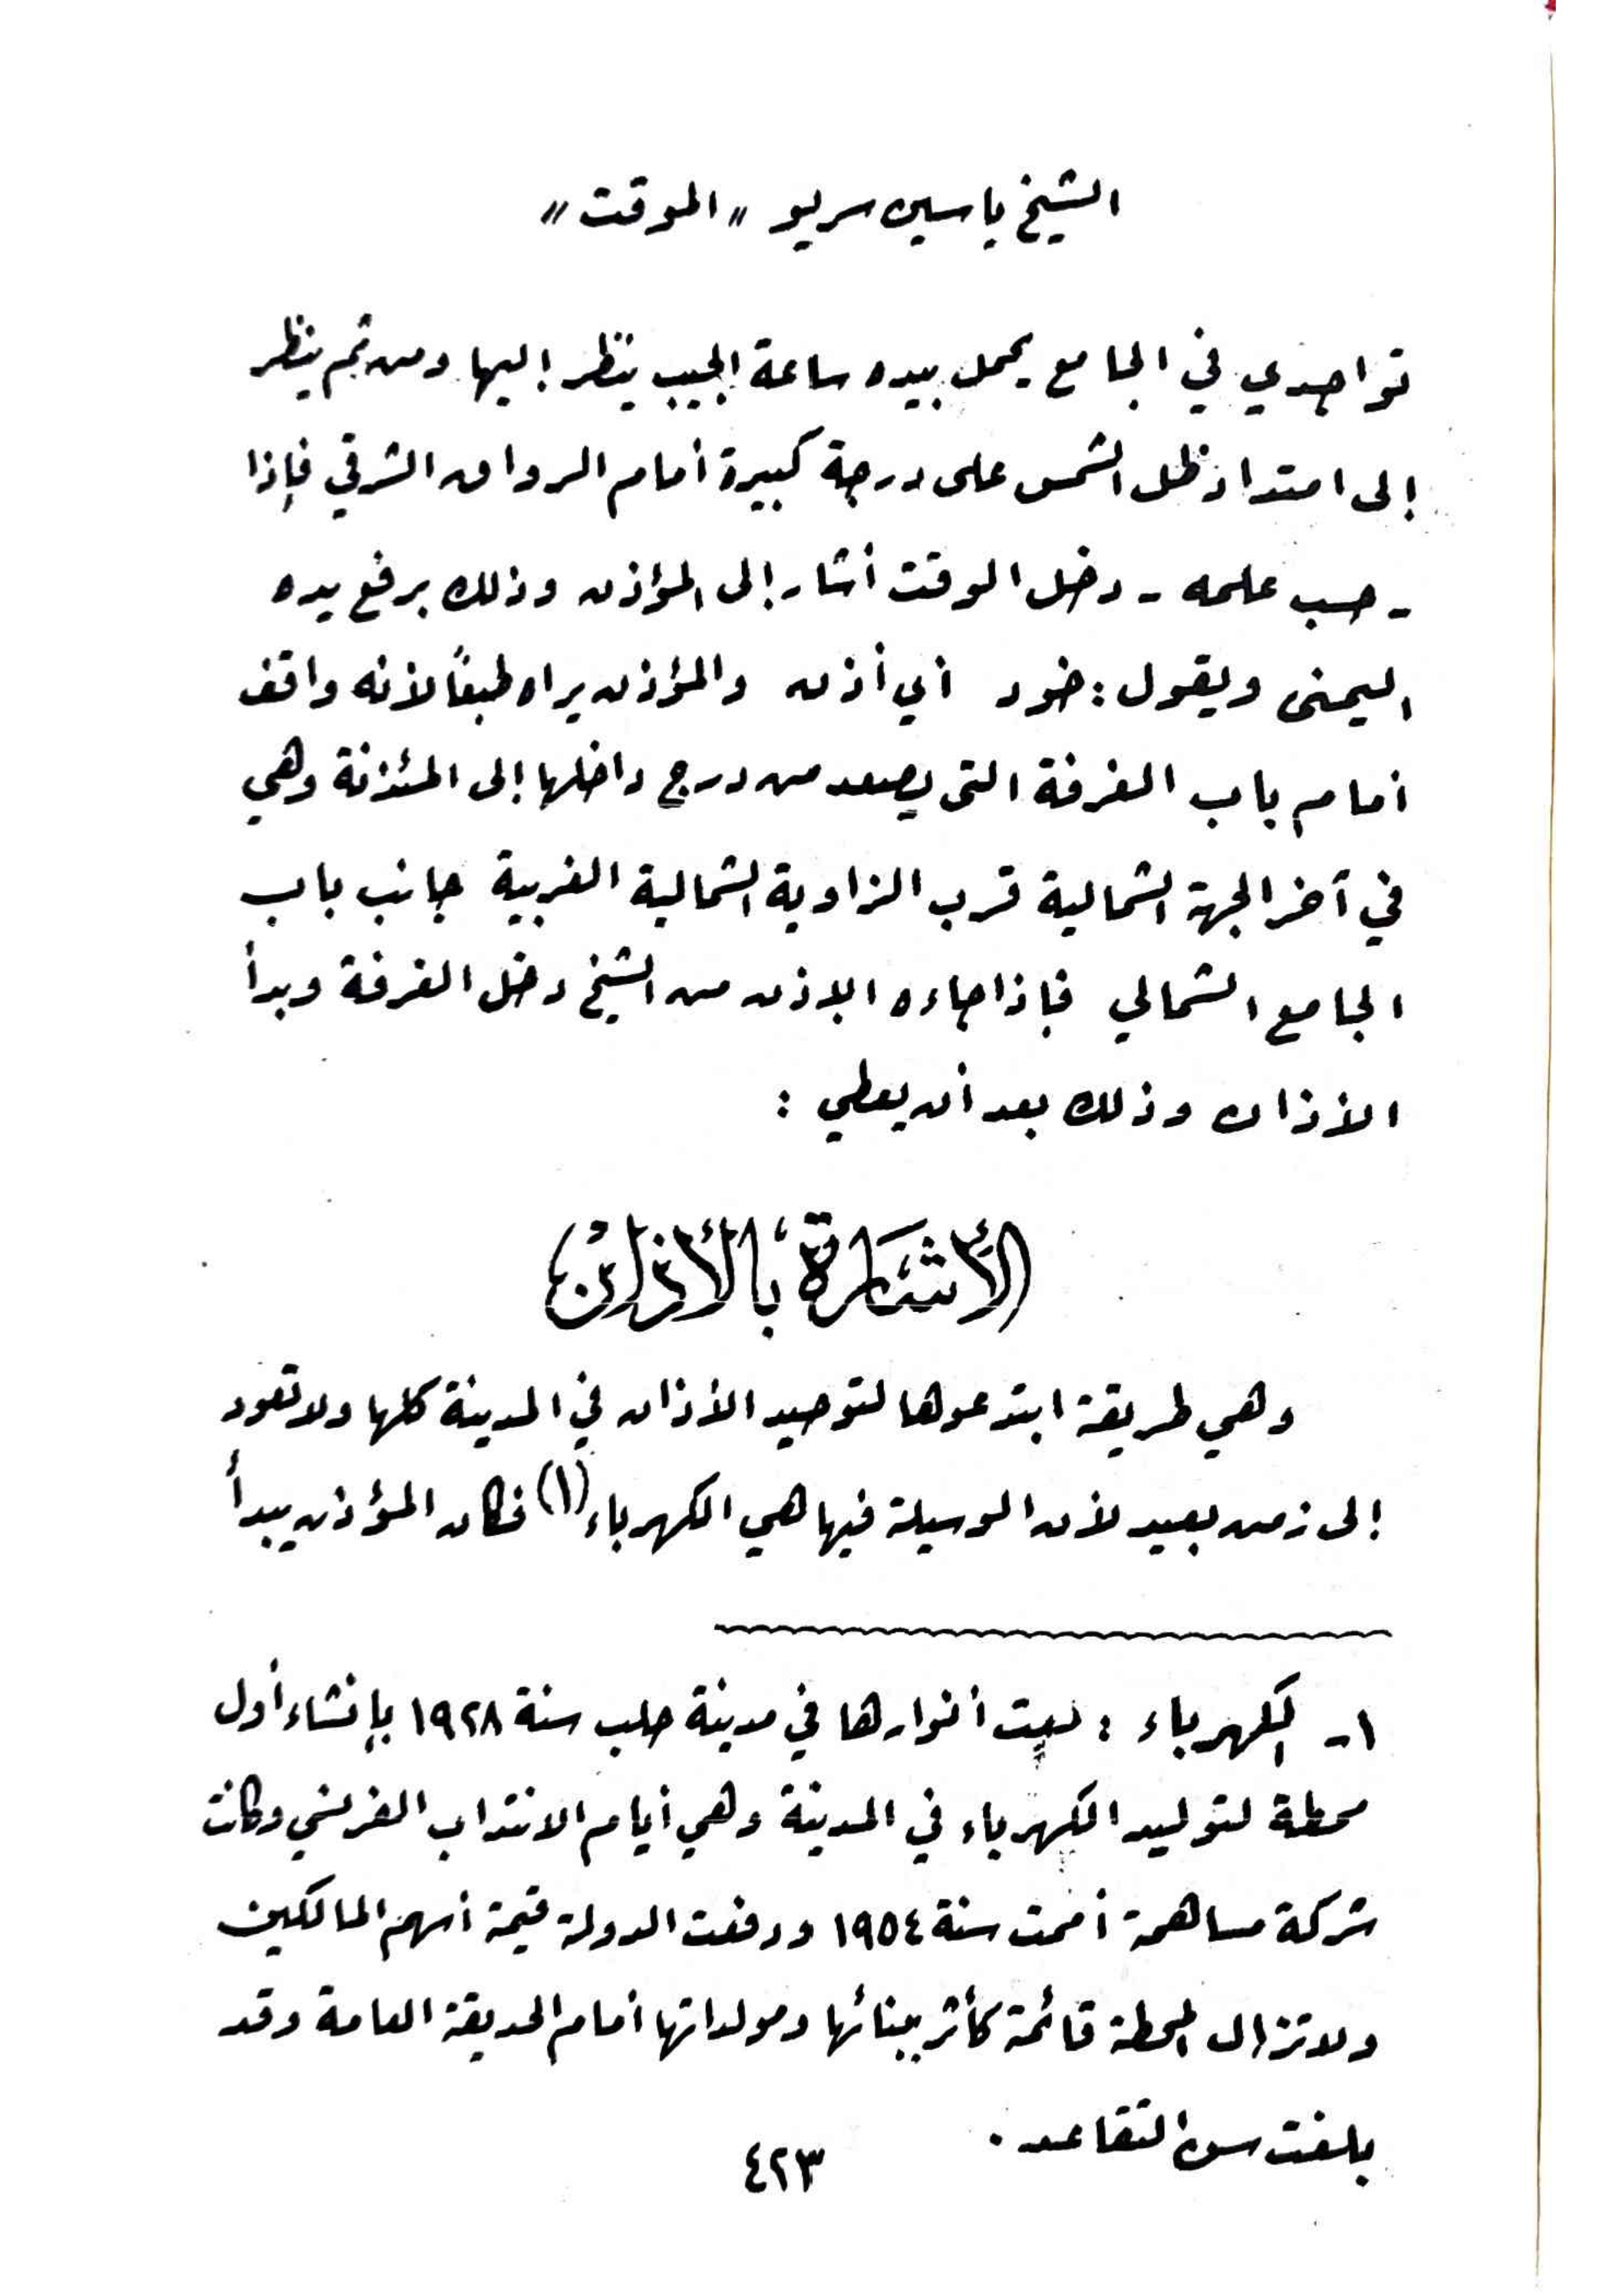 الشيخ ياسين سريو "الموقت"
تواجدي في الجامع يحمل بيده ساعة الجيب ينظر إليها ومن ثم ينظر
إلى امتداد ظل الشمس على درجة كبيرة أمام الرواق الشرقي فإذا
- حسب علمه - دخل الوقت أشار إلى المؤذن وذلك برفع يده
اليمنى ويقول : خود أي أذن والمؤذن يراه طبعاً لأنه واقف
أمام باب الغرفة التي يصعد من درج داخلها إلى المئذنة وهي
في آخر الجهة الشمالية قرب الزاوية الشمالية الغربية جانب باب
الجامع الشمالي فإذا جاءه الإذن من الشيخ دخل الغرفة وبدأ
الأذان وذلك بعد أن يعطي :
الأشارة بالأذان
وهي طريقة ابتدعوها لتوحيد الأذان في المدينة كلها ولا تعود
إلى زمن بعيد لأن الوسيلة فيها هي الكهرباء (١) فكان المؤذن يبدأ
١- الكهرباء : أنوارها في مدينة حلب سنة ١٩٢٨ بإنشاء أول
محطة لتوليد الكهرباء في المدينة وهي أيام الانتداب الفرنسي وكانت
شركة مساهمة أممت سنة ١٩٥٤ ودفعت الدولة قيمة أسهم المالكين
ولا تزال المحطة قائمة كأثر ببنائها ومولداتها أمام الحديقة العامة وقد
بلغت سن التقاعد .
٤٢٣